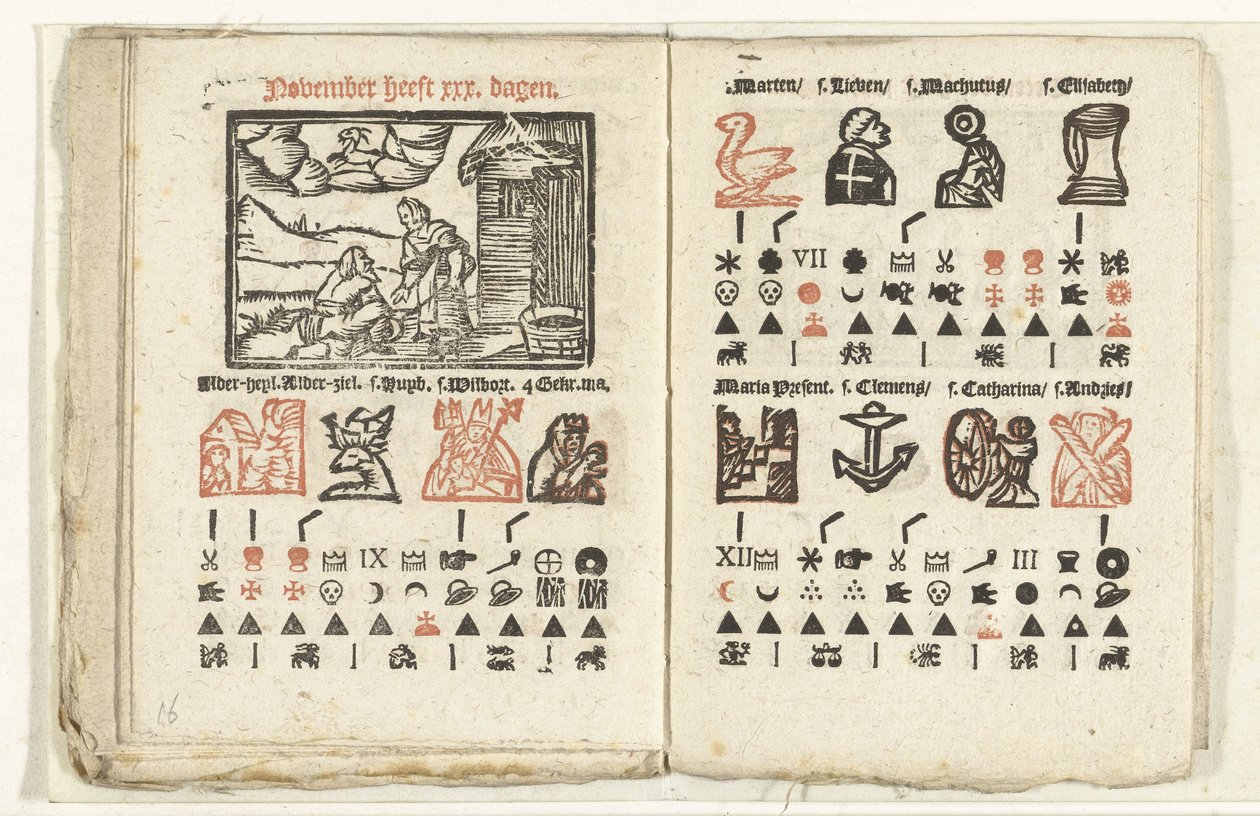 November heeft xxx. dagen.
Alder-heyl. Alder-ziel. s. Huyb. s. Wilbort. 4 Gekr. ma.
IX
16
s. Marten/ s. Lieven/ s. Machutus/ s. Elisabeth/
VII
Maria Present. s. Clemens/ s. Catharina/ s. Andries/
XII III